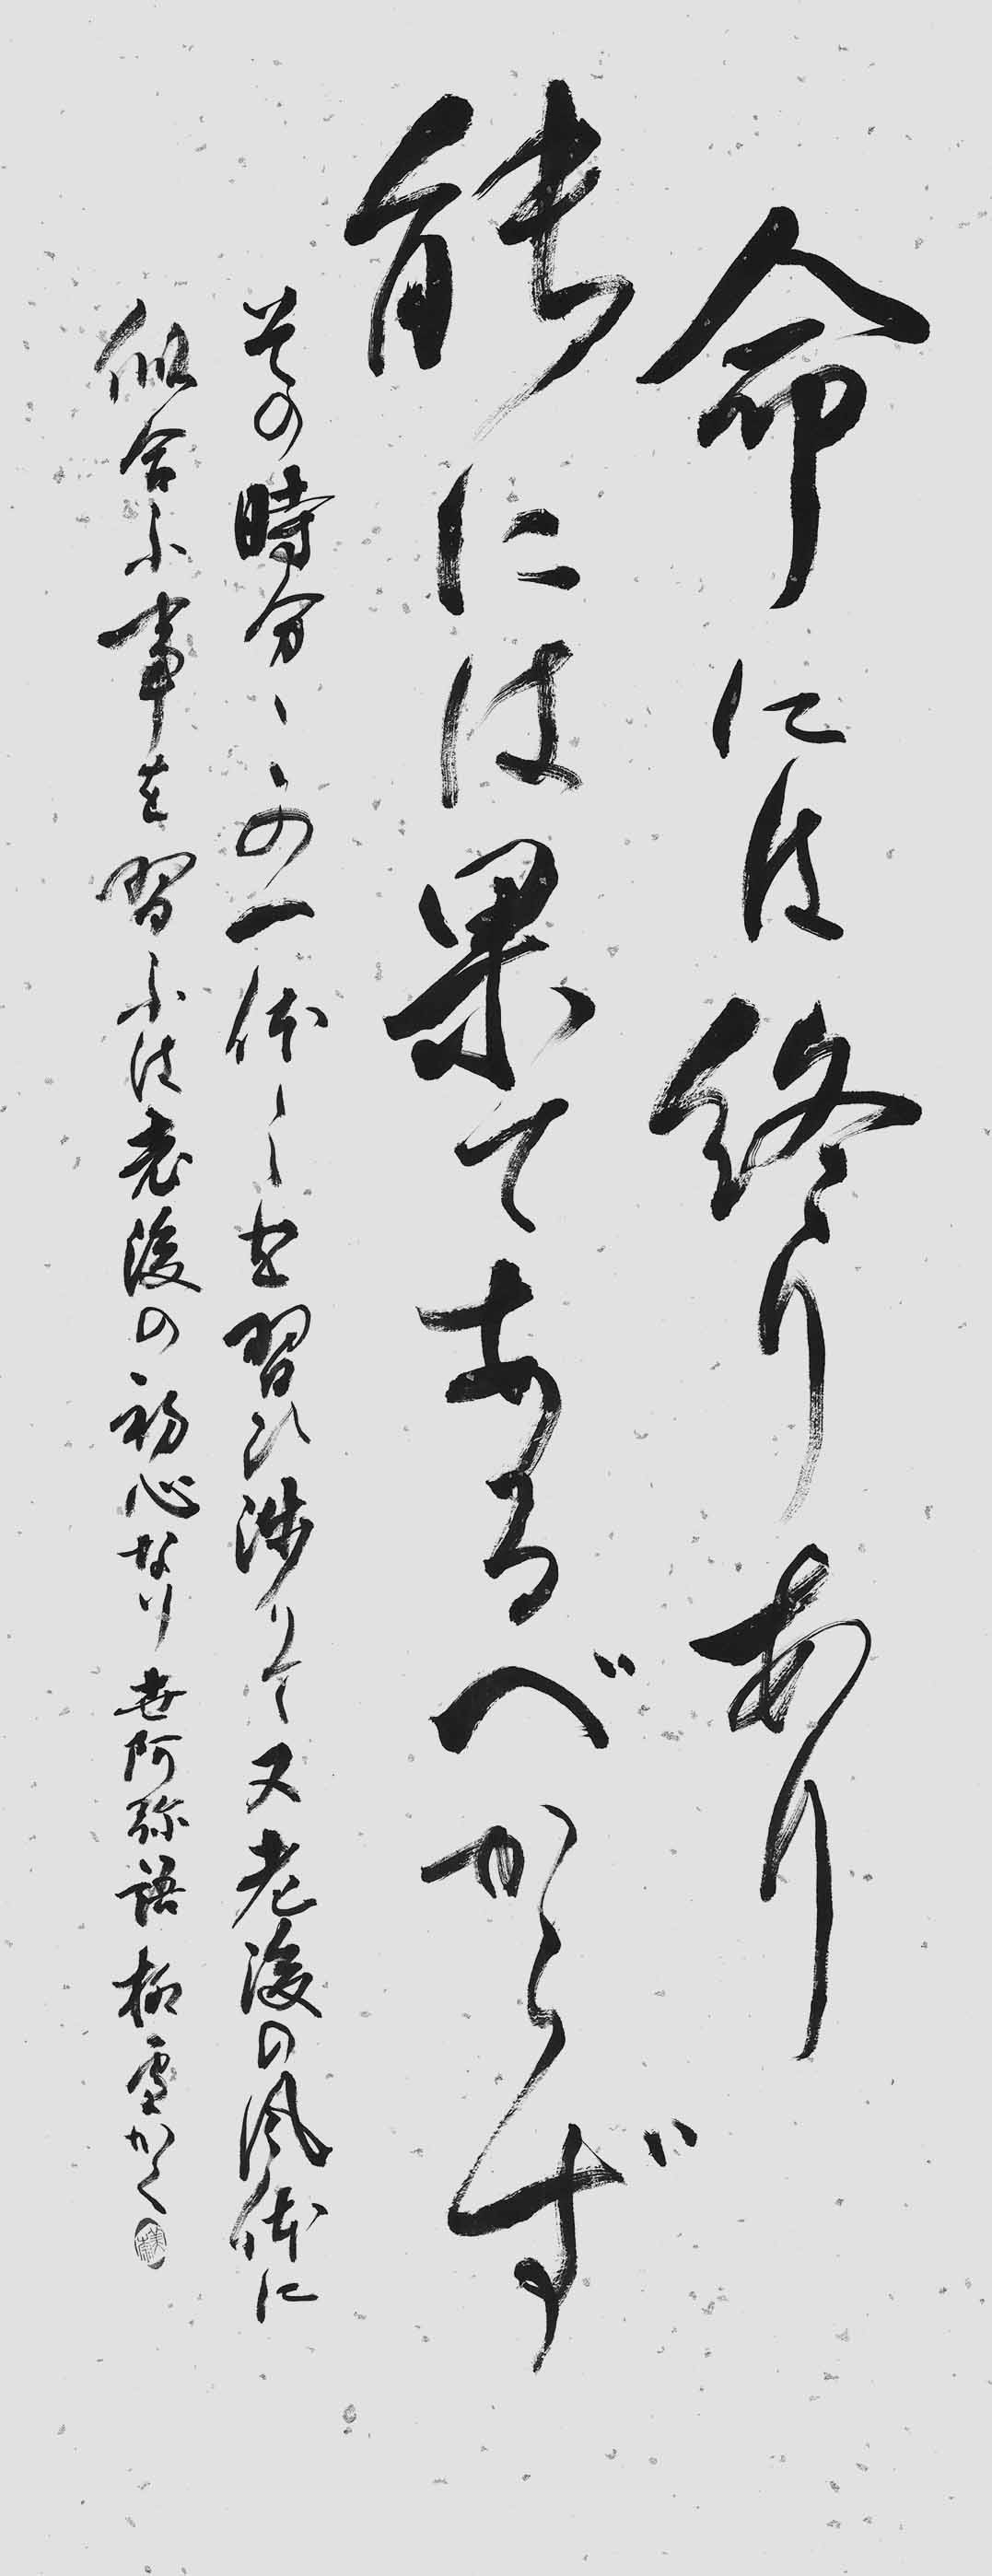 命には終りあり
能には果てあるべからず
その時分〳〵の一体〳〵を習ひ渉りて又老後の風体に
似合ふ事を習ふは老後の初心なり 世阿弥語 柳雪かく